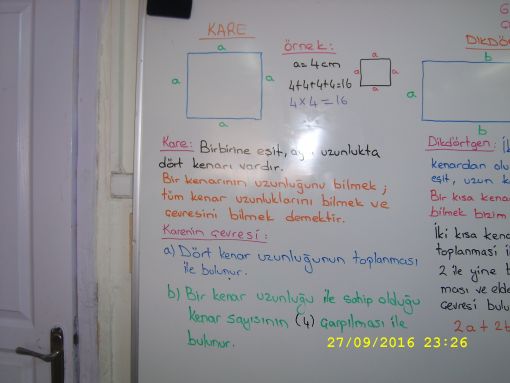 KARE
a
a
a
a
örnek:
a = 4 cm
4+4+4+4=16
4 x 4 = 16
a
a
a
a
Kare: Birbirine eşit, uzunlukta
dört kenarı vardır.
Bir kenarının uzunluğunu bilmek ;
tüm kenar uzunluklarını bilmek ve
çevresini bilmek demektir.
Karenin çevresi :
a) Dört kenar uzunluğunun toplanması
ile bulunur.
b) Bir kenar uzunluğu ile sahip olduğu
kenar sayısının (4) çarpılması ile
bulunur.
DİKDÖ
b
a
b
Dikdörtgen:
kenardan
eşit, uzun
Bir kısa
bilmek bizim
İki kısa
toplanması
2 ile yine
ması ve
çevresi
2a + 2
27/09/2016 23:26